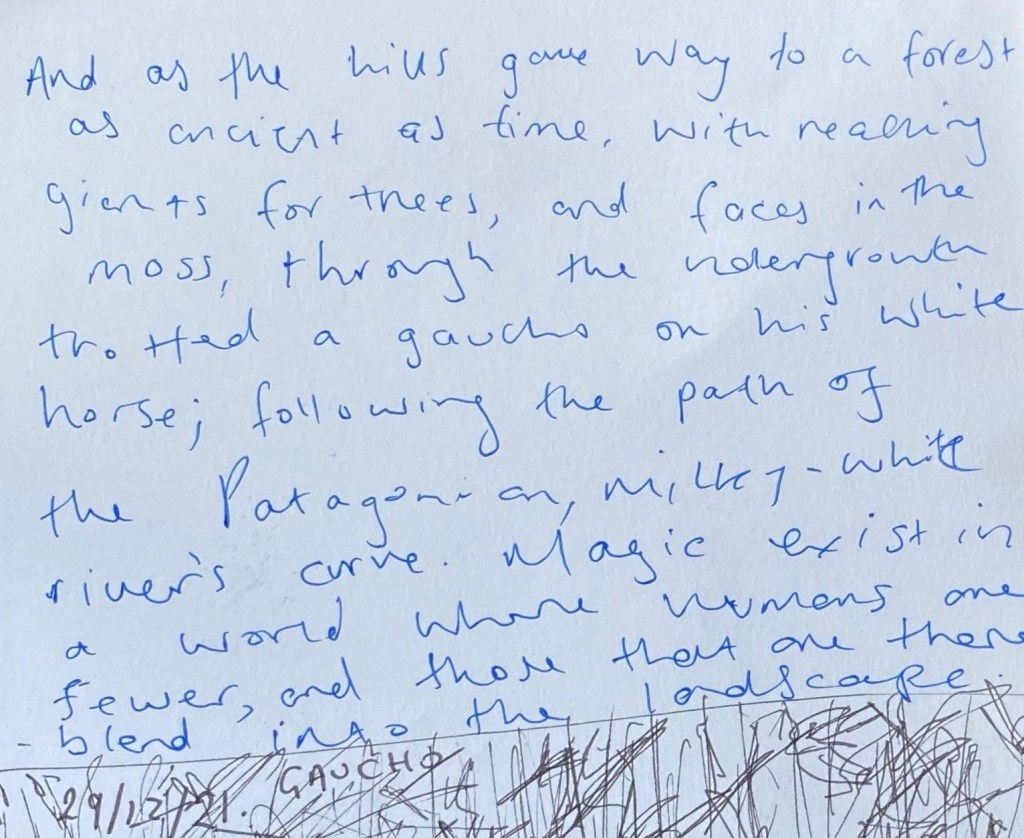 And as the hills gave way to a forest
as ancient as time, with reaching
giants for trees, and faces in the
moss, through the undergrowth
trotted a gaucho on his white
horse; following the path of
the Patagonian, milky-white
river's curve. Magic exist in
a world where humans are
fewer, and those that are there
- blend into the landscape.
GAUCHO
29/12/21.